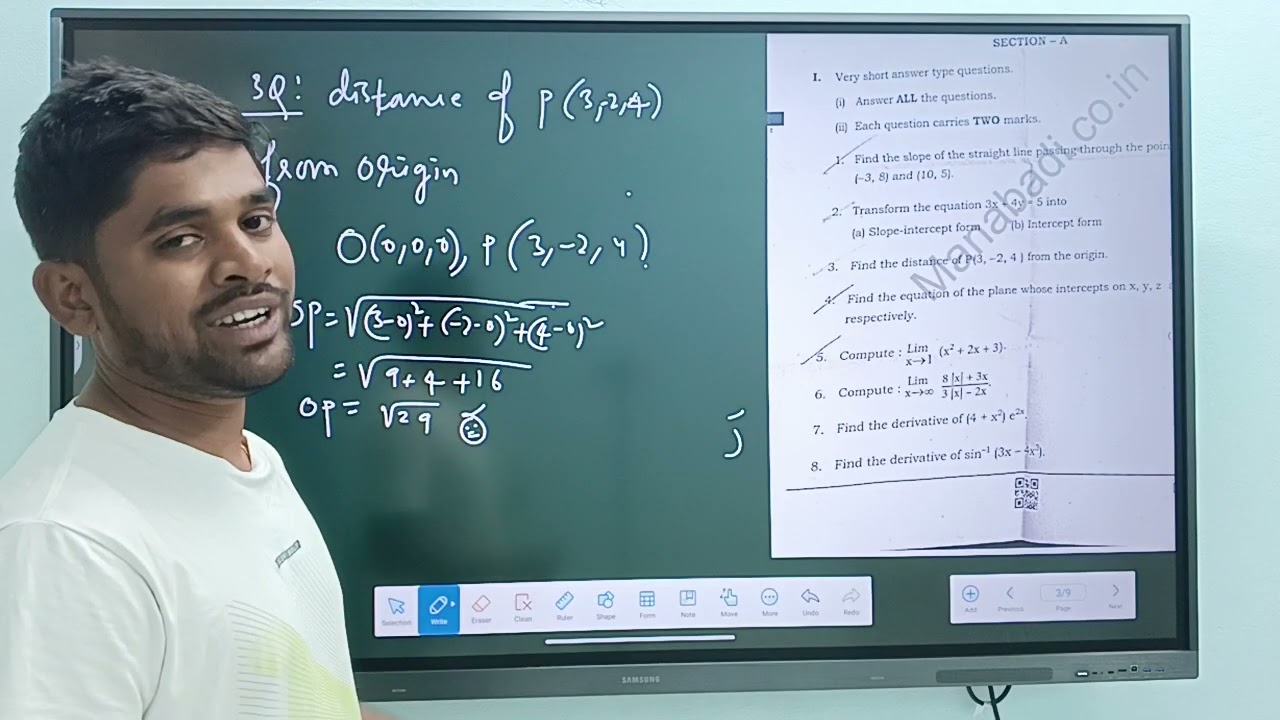 3Q: distance of P(3,-2,4)
from origin
O(0,0,0), P(3,-2,4)
OP=√(3-0)²+(-2-0)²+(4-0)²
=√9+4+16
OP=√29
SECTION – A
I. Very short answer type questions.
(i) Answer ALL the questions.
(ii) Each question carries TWO marks.
1. Find the slope of the straight line passing through the
(–3, 8) and (10, 5).
2. Transform the equation 3x + 4y = 5 into
(a) Slope-intercept form (b) Intercept form
3. Find the distance of P(3, –2, 4 ) from the origin.
4. Find the equation of the plane whose intercepts on x, y, z
respectively.
5. Compute : Lim x→1 (x² + 2x + 3).
6. Compute : Lim x→∞ 8|x| + 3x / 3|x| – 2x.
7. Find the derivative of (4 + x²) e²ˣ.
8. Find the derivative of sin⁻¹ (3x – 4x³).
Manabadi.co.in
Selection Write Eraser Clean Ruler Shape Form Note Move More Undo Redo
Add Previous 3/9 Page Next
SAMSUNG